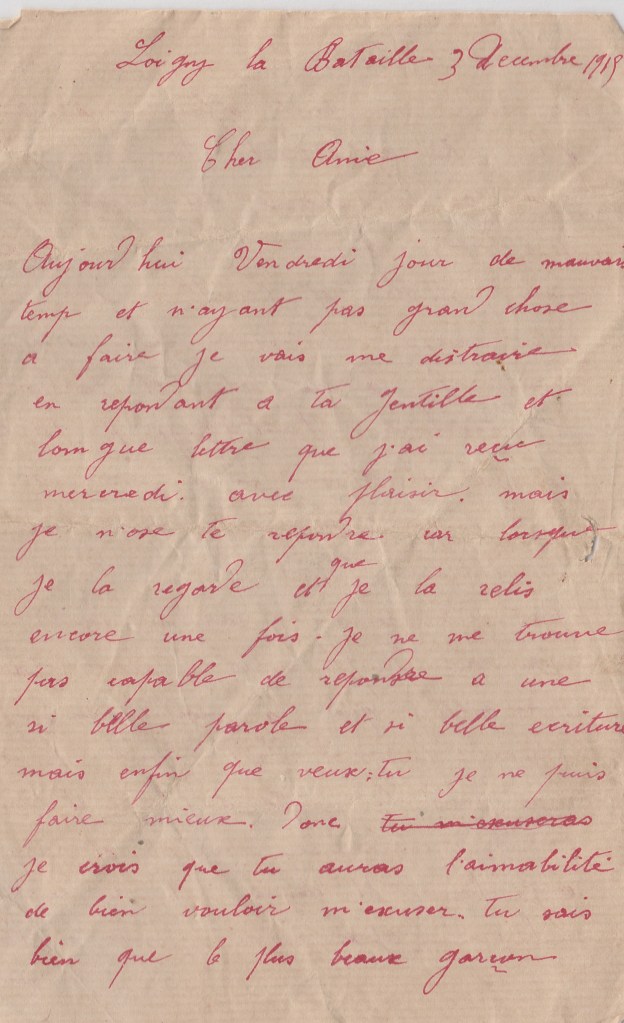 Loigny la Bataille 3 Decembre 1915
Cher Amie
Aujourd'hui Vendredi jour de mauvais
temp et n'ayant pas grand chose
a faire je vais me distraire
en repondant a ta gentille et
longue lettre que j'ai reçue
mercredi. avec plaisir. mais
je n'ose te repondre car lorsque
je la regarde et que je la relis
encore une fois. je ne me trouve
pas capable de repondre a une
si belle parole et si belle ecriture
mais enfin que veux-tu je ne puis
faire mieux. Donc tu m'exuseras
je crois que tu auras l'aimabilité
de bien vouloir m'exuser. tu sais
bien que le plus beaux garçon